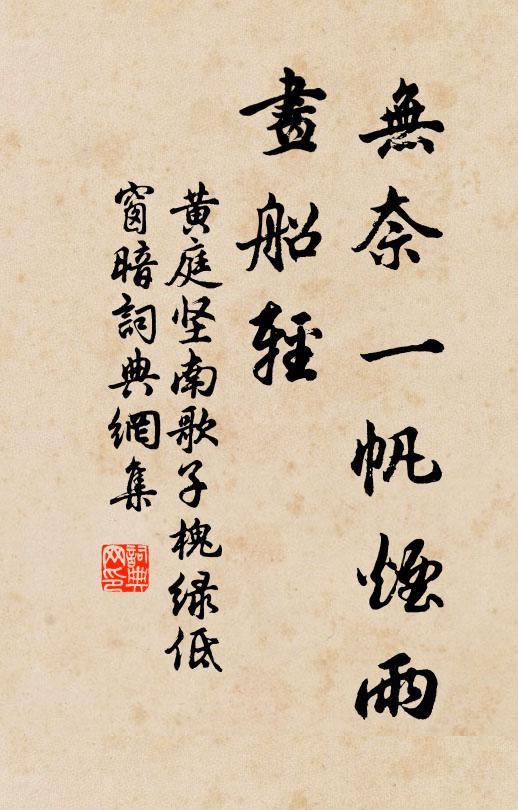 無奈一帆煙雨
畫船輕
黄庭坚南歌子槐绿低
窗暗詞典網集
詞典
网印